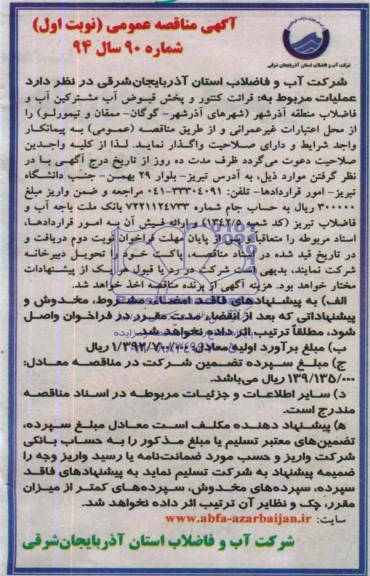 آگهی مناقصه عمومی (نوبت اول)
شماره ۹۰ سال ۹۴
شرکت آب و فاضلاب استان آذربایجان شرقی
شرکت آب و فاضلاب استان آذربایجان‌شرقی در نظر دارد
عملیات مربوط به: قرائت کنتور و پخش قبوض آب مشترکین آب و
فاضلاب منطقه آذرشهر (شهرهای آذرشهر- گوگان- ممقان و تیمورلو) را
از محل اعتبارات غیرعمرانی و از طریق مناقصه (عمومی) به پیمانکار
واجد شرایط و دارای صلاحیت واگذار نماید. لذا از کلیه واجدین
صلاحیت دعوت می‌گردد ظرف مدت ده روز از تاریخ درج آگهی با در
نظر گرفتن موارد ذیل، به آدرس تبریز- بلوار ۲۹ بهمن- جنب دانشگاه
تبریز- امور قراردادها- تلفن: ۳۳۳۰۴۰۹۱-۰۴۱ مراجعه و ضمن واریز مبلغ
۳۰۰۰۰۰ ریال به حساب جام شماره ۷۲۲۱۱۲۴۷۳۳ بانک ملت باجه آب و
فاضلاب تبریز (کد شعبه ۱۳۴۲/۵) و ارائه فیش آن به امور قراردادها،
اسناد مربوطه را متعاقباً پس از پایان مهلت فراخوان نوبت دوم دریافت و
در تاریخ قید شده در اسناد مناقصه، پاکت خود را تحویل دبیرخانه
شرکت نمایند، بدیهی است شرکت در رد یا قبول هر یک از پیشنهادات
مختار خواهد بود. هزینه آگهی از برنده مناقصه اخذ خواهد شد.
الف) به پیشنهادهای فاقد امضاء، مشروط، مخدوش و
پیشنهاداتی که بعد از انقضاء مدت مقرر در فراخوان واصل
شود، مطلقاً ترتیب اثر داده نخواهد شد.
ب) مبلغ برآورد اولیه معادل ریال
ج) مبلغ سپرده تضمین شرکت در مناقصه معادل:
۱۳۹/۱۳۵/۰۰۰ ریال می‌باشد.
د) سایر اطلاعات و جزئیات مربوطه در اسناد مناقصه
مندرج است.
ه) پیشنهاد دهنده مکلف است معادل مبلغ سپرده،
تضمین‌های معتبر تسلیم یا مبلغ مذکور را به حساب بانکی
شرکت واریز و حسب مورد ضمانت‌نامه یا رسید واریز وجه را
ضمیمه پیشنهاد به شرکت تسلیم نماید به پیشنهادهای فاقد
سپرده، سپرده‌های مخدوش، سپرده‌های کمتر از میزان
مقرر، چک و نظایر آن ترتیب اثر داده نخواهد شد.
سایت: www.abfa-azarbaijan.ir
شرکت آب و فاضلاب استان آذربایجان‌شرقی